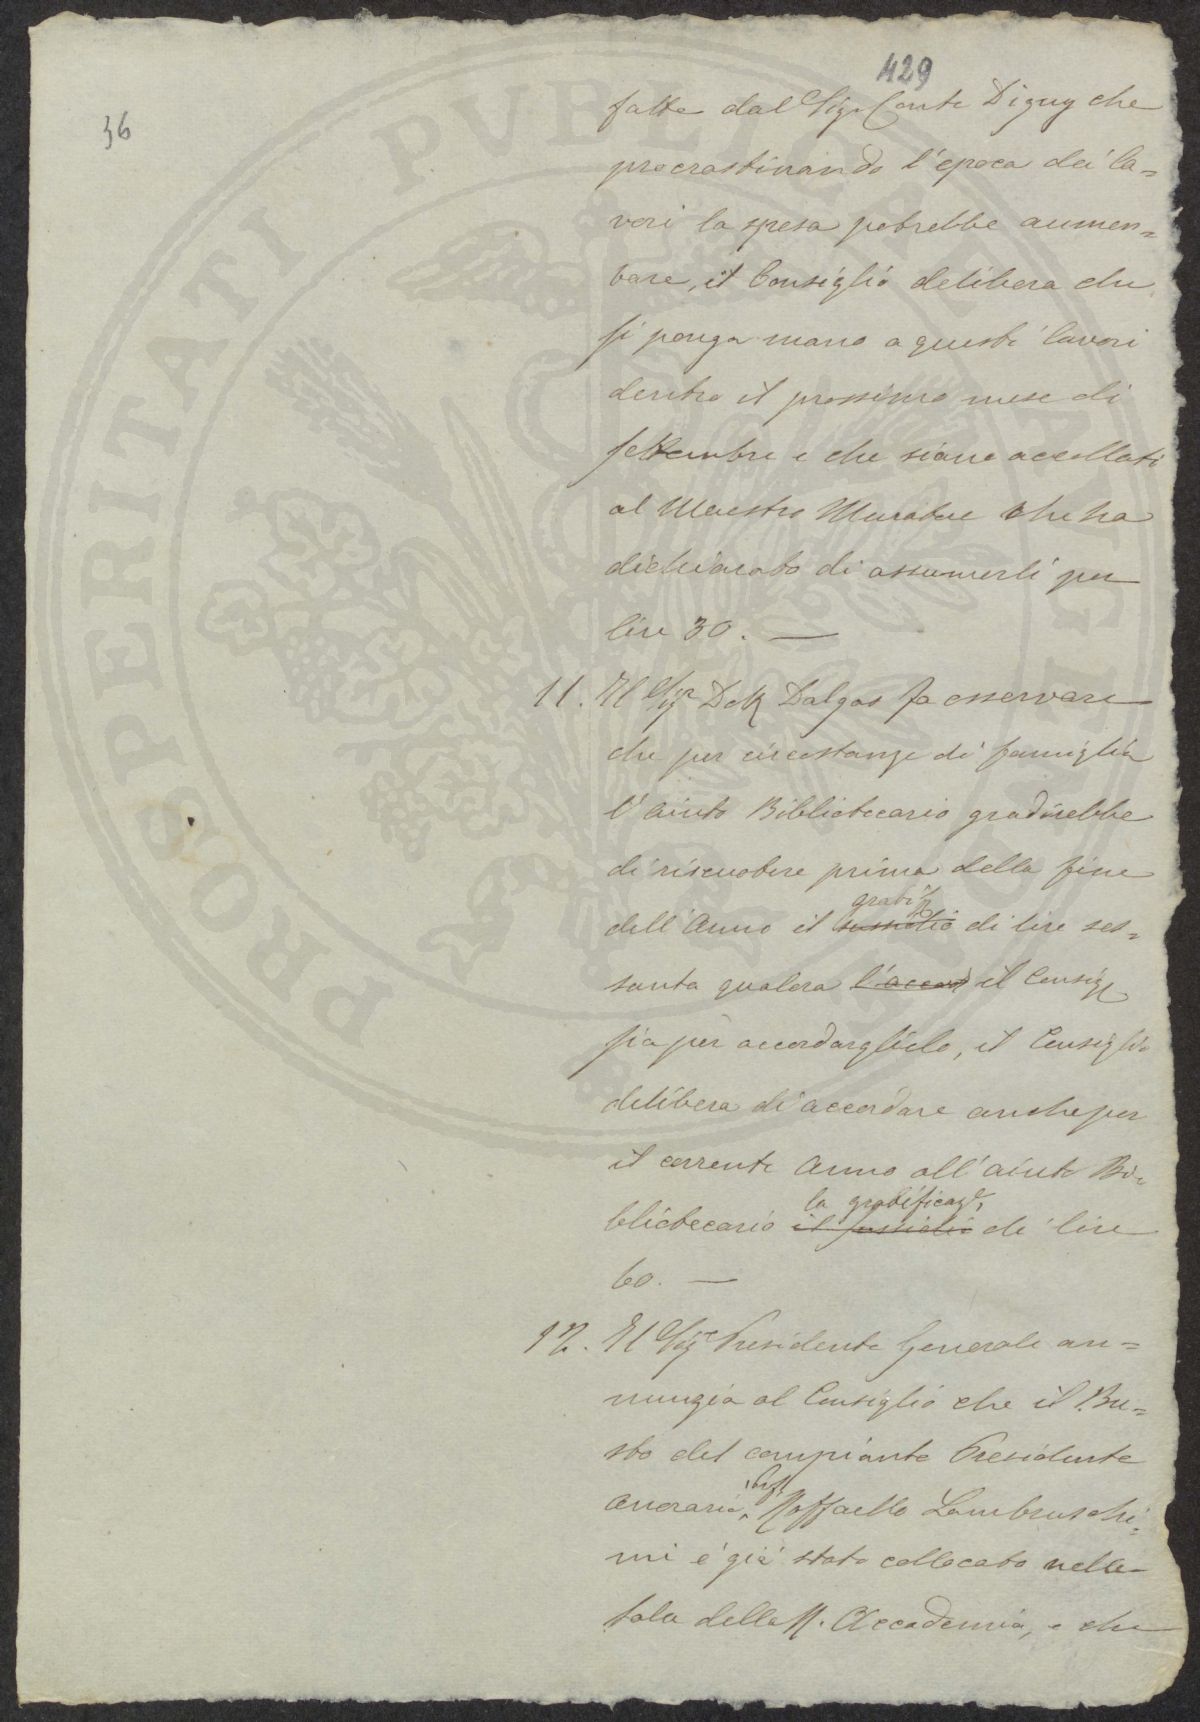 429
36
fatte dal Sigr Conte Digny che
procrastinando l'epoca dei la=
vori la spesa potrebbe aumen=
tare, il Consiglio delibera che
si ponga mano a questi lavori
dentro il prossimo mese di
settembre e che siano accollati
al Maestro Muratore che ha
dichiarato di assumerli per
lire 30. —
11. Il Sigr Dott Dalgas fa osservare
che per circostanze di famiglia
l'aiuto Bibliotecario gradirebbe
di riscuotere prima della fine
gratif
dell'Anno il sussidio di lire ses=
santa qualora l'accor il Consig
sia per accordarglielo, il Consiglio
delibera di accordare anche per
il corrente Anno all'aiuto Bi=
la gratificaze
bliotecario il sussidio di lire
60. —
12. Il Sigr Presidente Generale an=
nunzia al Consiglio che il Bu=
sto del compianto Presidente
onorario, Raffaello Lambruschi=
ni è già stato collocato nella
sala della R. Accademia, e che
PROSPERITATI PVBLICAE